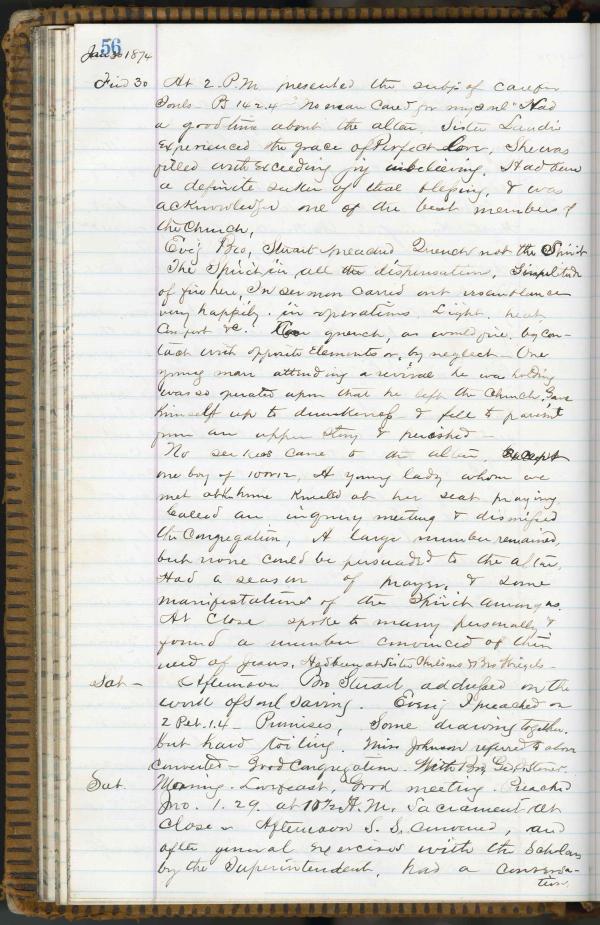 56
Jan 30 1874
Frid 30 At 2. P.M. presented the subj. of care for
Souls - Ps 142.4 "No man cared for my soul" Had
a good time about the altar. Sister Landis
experienced the grace of Perfect Love, She was
filled with exceeding joy in believing. Had been
a definite seeker of that blessing, & was
acknowledged one of the best members of
the Church,
Evg Bro, Stuart preached Quench not the Spirit
The Spirit in all the dispensation,
of fire here, In sermon carried out resemblance
very happily. in operations. Light, heat
Comfort &c. quench, as would fire, by con-
tact with opposite Elements or, by neglect - One
young man attending a revival he was holding
was so operated upon that he left the Church. Gave
himself up to drunkeness & fell to pavement
from an upper story & perished -
No seekers came to the altar, except
one boy of 10 or 12, A young lady whom we
met at home kneeled at her seat praying
Called an inquiry meeting & dismissed
the Congregation, A large number remained,
but none could be persuaded to the altar,
Had a season of prayer, & some
manifestations of the Spirit among us.
At Close spoke to many personally &
found a number convinced of their
need of Jesus. Had been at Sister
Sat - Afternoon Bro Stuart addressed on the
work of soul saving. Evng I preached on
2 Pet. 1.4 - Promises, Some drawing together.
but hard toiling. Miss Johnson referred to above
converted - Good Congregation. With Bro
Sat. Morning - Lovefeast, Good meeting. Preached
Jno. 1.29. at 10½ A.M. Sacrament at
Close - Afternoon S. S. convened, and
after general exercises with the Scholars
by the Superintendent, had a conversa-
tion.